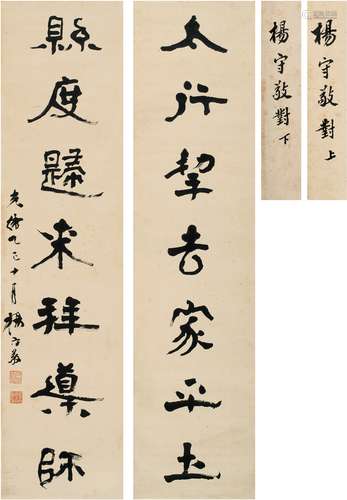 楊守敬對上
楊守敬對下
太行挈去家平土
縣度歸来拜導師
光緒乙巳十月楊守敬